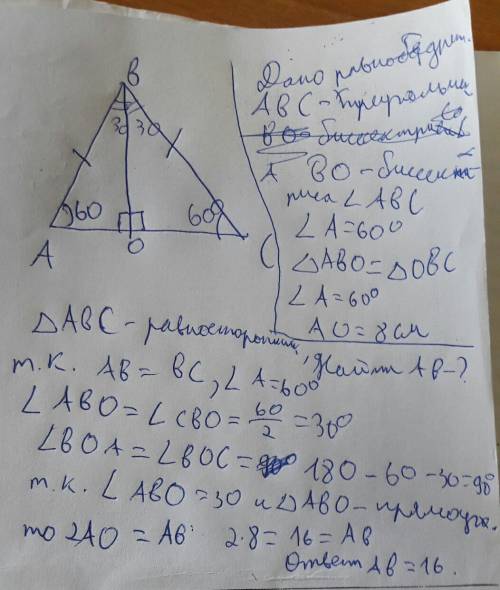 B
30 30
60 60
A O C
Дано равнобедрен.
ABC - треугольник
BO - биссектриса
BO - биссек-
триса ∠ABC
∠A = 60°
△ABO = △OBC
∠A = 60°
AO = 8 см
Найти AB - ?
△ABC - равносторонний,
т.к. AB = BC, ∠A = 60°
∠ABO = ∠CBO = 60/2 = 30°
∠BOA = ∠BOC = 180 - 60 - 30 = 90°
т.к. ∠ABO = 30 и △ABO - прямоуг.
то 2AO = AB 2·8 = 16 = AB
Ответ AB = 16.